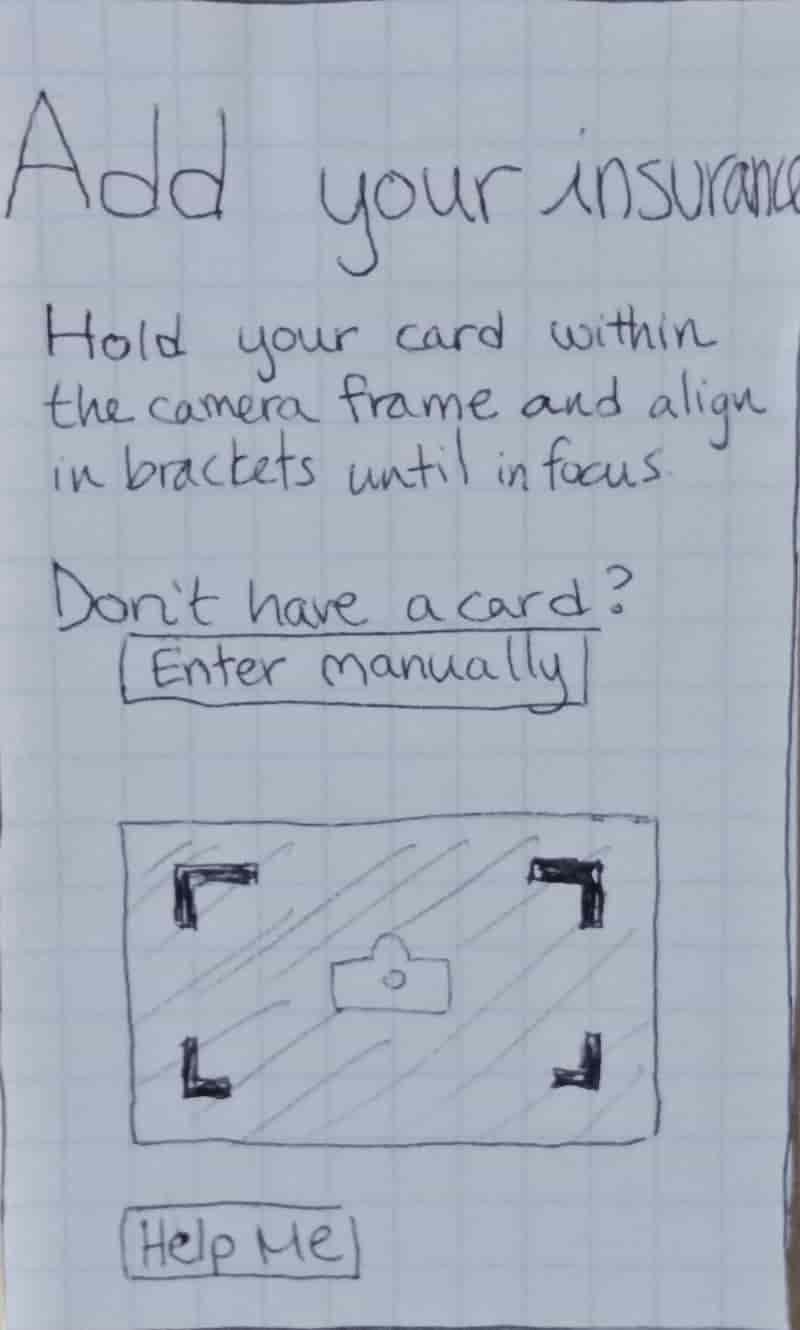 Add your insurance
Hold your card within
the camera frame and align
in brackets until in focus.
Don't have a card?
Enter manually
Help Me